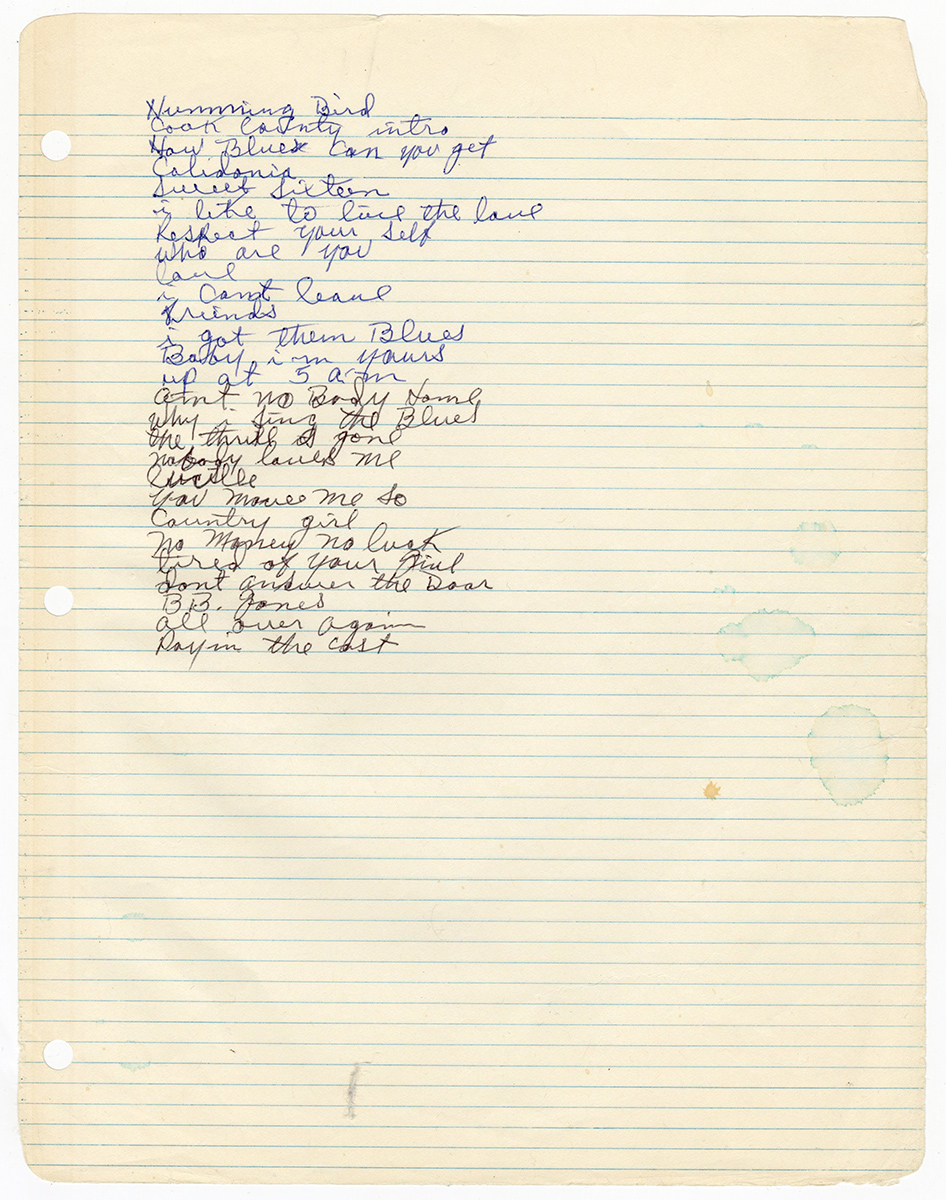 Humming Bird
Cook County intro
How Blues Can you get
Calidonia
Sweet Sixteen
i like to live the love
Respect your self
who are you
love
i Cant leave
friends
i got them Blues
Baby i m yours
up at 5 a.m
aint no Body Home
why i sing the Blues
the thrill is gone
nobody loves me
lucille
you move me so
Country girl
No Money no luck
tired of your jive
dont answer the Door
BB. Jones
all over again
Payin the cost